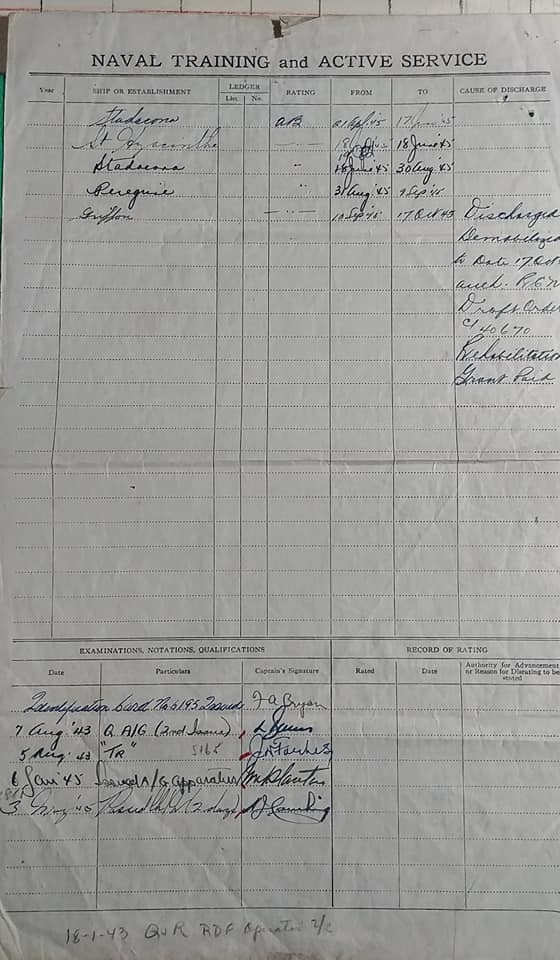 NAVAL TRAINING and ACTIVE SERVICE
Year SHIP OR ESTABLISHMENT LEDGER RATING FROM TO CAUSE OF DISCHARGE
List No.
Stadacona AB 45 17 45
St Hyacinthe 18 June 45
Stadacona " 18 June 45 30 Aug 45
Peregrine " 31 Aug 45 9 Sep 45
Griffon " 10 Sep 45 17 Oct 45 Discharged
Demobilized
to Date 17 Oct
auth. RCN
Draft Order
C1 40670
Rehabilitation
Grant Paid
EXAMINATIONS, NOTATIONS, QUALIFICATIONS RECORD OF RATING
Date Particulars Captain's Signature Rated Date Authority for Advancement
or Reason for Disrating to be
stated
Identification Card No 6195 Issued F A Bryan
7 Aug '43 Q A/G (2nd Issue)
5 Aug 43 "TR"
6 Jan 45 Issued A/G apparatus
3 45 (2 days)
18-1-43 RDF Operator